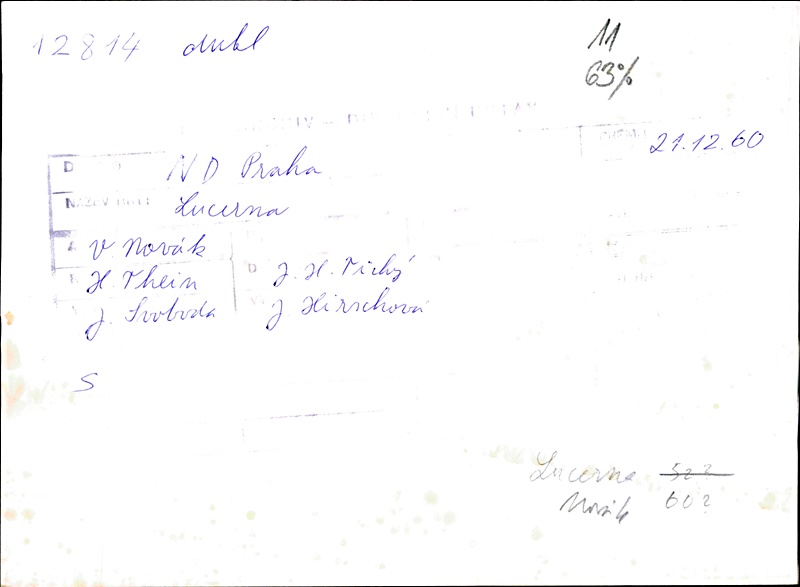 12814 dubl
11
63%
21.12.60
D ND Praha
NÁZEV Lucerna
V Novák
H. Thein
D J. H. Tichý
J. Svoboda
J Hirschová
S
Lucerna 52?
Novák 60?